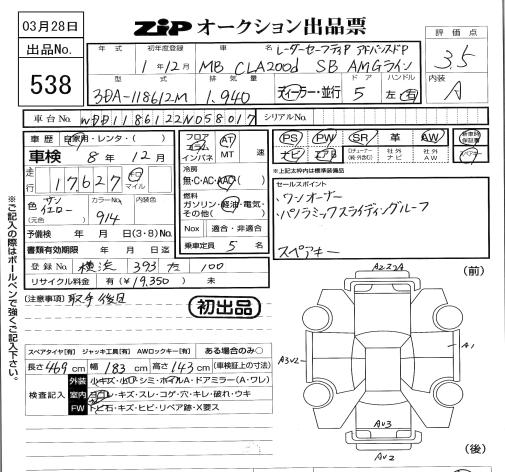 03月28日
ZIP オークション出品票
出品No.
538
評価点
3.5
内装
A
年式 初年度登録 車名
レーダーセーフティP アドバンスドP
1年12月 MB CLA200d SB AMGライン
型式 排気量 ドア ハンドル
3DA-118612M 1,940 ディーラー・並行 5 左・右
車台No. WDD1186122N058017 シリアルNo.
車歴 自家用・レンタ・( )
車検 8年12月
走行 17627 キロ マイル
色 サンイエロー (元色) カラーNo. 914
予備検 年 月 日(3・8)ヶ月
書類有効期限 年 月 日迄
登録No. 横浜 393 た 100
リサイクル料金 有(¥19,350) 未
フロア コラム インパネ AT MT 速
冷房
無・C・AC・AAC
燃料
ガソリン・軽油・電気・その他( )
Nox 適合・非適合
乗車定員 5 名
PS PW SR 革 AW
ナビ エアB 社外ナビ 社外AW
新車時保証書
★上記太枠内は標準装備品
セールスポイント
・ワンオーナー
・パノラミックスライディングルーフ
スペアキー
(注意事項) 取予後日
初出品
スペアタイヤ[有] ジャッキ工具[有] AWロックキー[有] ある場合のみ○
長さ 469 cm 幅 183 cm 高さ 143 cm (車検証上の寸法)
検査記入
外装 小キズ・凹・シミ・ホイルA・ドアミラー(A・ワレ)
室内 ヨゴレ・キズ・スレ・コゲ・穴・キレ・破れ・ウキ
FW トビ石・キズ・ヒビ・リペア跡・X要ス
※ご記入の際はボールペンで強くご記入下さい。
(前)
A3U2
A1
AU3
AU2
(後)